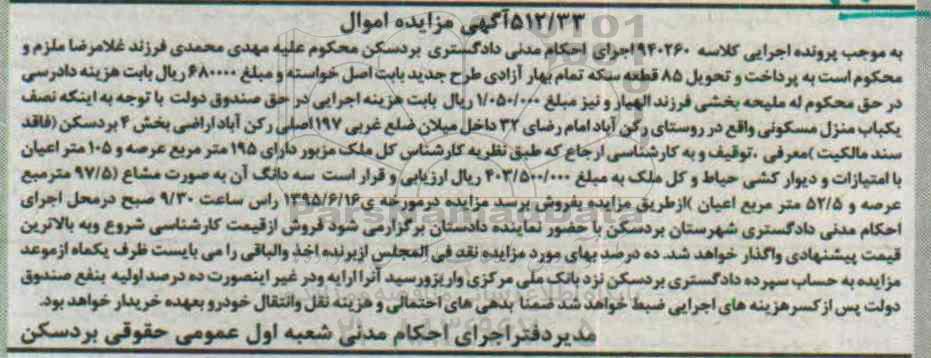 ۵۱۲/۳۳آگهی مزایده اموال
به موجب پرونده اجرایی کلاسه ۹۴۰۲۶۰اجرای احکام مدنی دادگستری بردسکن محکوم علیه مهدی محمدی فرزند غلامرضا ملزم و
محکوم است به پرداخت و تحویل ۸۵ قطعه سکه تمام بهار آزادی طرح جدید بابت اصل خواسته و مبلغ ۶۸۰۰۰۰ ریال بابت هزینه دادرسی
در حق محکوم له ملیحه بخشی فرزند الهیار و نیز مبلغ ۱/۰۵۰/۰۰۰ ریال بابت هزینه اجرایی در حق صندوق دولت با توجه به اینکه نصف
یکباب منزل مسکونی واقع در روستای رکن آباد امام رضای ۳۲ داخل میلان ضلع غربی ۱۹۷اصلی رکن آباد اراضی بخش ۴ بردسکن (فاقد
سند مالکیت )معرفی ،توقیف و به کارشناسی ارجاع که طبق نظریه کارشناس کل ملک مزبور دارای ۱۹۵ متر مربع عرصه و ۱۰۵ متر اعیان
با امتیازات و دیوار کشی حیاط و کل ملک به مبلغ ۴۰۳/۵۰۰/۰۰۰ ریال ارزیابی و قرار است سه دانگ آن به صورت مشاع (۹۷/۵ مترمربع
عرصه و ۵۲/۵ متر مربع اعیان )ازطریق مزایده بفروش برسد مزایده درمورخه ی۱۳۹۵/۶/۱۶ راس ساعت ۹/۳۰ صبح درمحل اجرای
احکام مدنی دادگستری شهرستان بردسکن با حضور نماینده دادستان برگزارمی شود فروش ازقیمت کارشناسی شروع وبه بالاترین
قیمت پیشنهادی واگذار خواهد شد. ده درصد بهای مورد مزایده نقد فی المجلس ازبرنده اخذ والباقی را می بایست ظرف یکماه ازموعد
مزایده به حساب سپرده دادگستری بردسکن نزد بانک ملی مرکزی واریزورسید آنرا ارایه ودر غیر اینصورت ده درصد اولیه بنفع صندوق
دولت پس ازکسرهزینه های اجرایی ضبط خواهد شد ضمنا بدهی های احتمالی و هزینه نقل وانتقال خودرو بعهده خریدار خواهد بود.
مدیردفتراجرای احکام مدنی شعبه اول عمومی حقوقی بردسکن
ParsNamadData